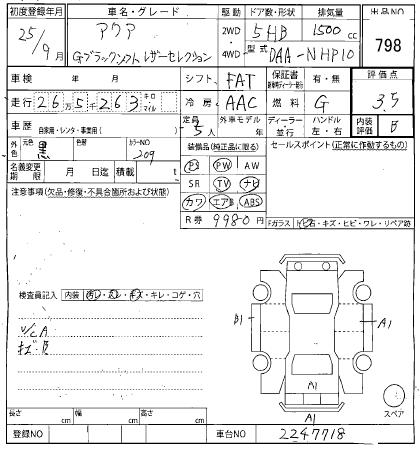 初度登録年月 車名・グレード 駆動 ドア数・形状 排気量 出品NO
25/9月 アクア 2WD 5HB 1500cc 798
Gブラックソフトレザーセレクション 4WD 型式 DAA-NHP10
車検 年 月 シフト FAT 保証書 有・無 評価点
走行 26万5千263 キロ マイル 冷房 AAC 燃料 G 3.5
車歴 自家用・レンタ・事業用( ) 定員 5人 外車モデル 年 ディーラー 並行 ハンドル 左・右 内装評価 B
外色 元色 黒 色替 カラーNO 209 装備品(純正品に限る) セールスポイント(正常に作動するもの)
名義変更期限 月 日迄 積載 t PS PW AW
注意事項(欠品・修復・不具合箇所および状態) SR TV ナビ
カワ エアB ABS
R券 9980 円 Fガラス トビ石・キズ・ヒビ・ワレ・リペア跡
検査員記入 内装 汚レ・スレ・キズ・キレ・コゲ・穴
B1 A1
A1
スペア
A1
長さ cm 幅 cm 高さ cm
登録NO 車台NO 2247718